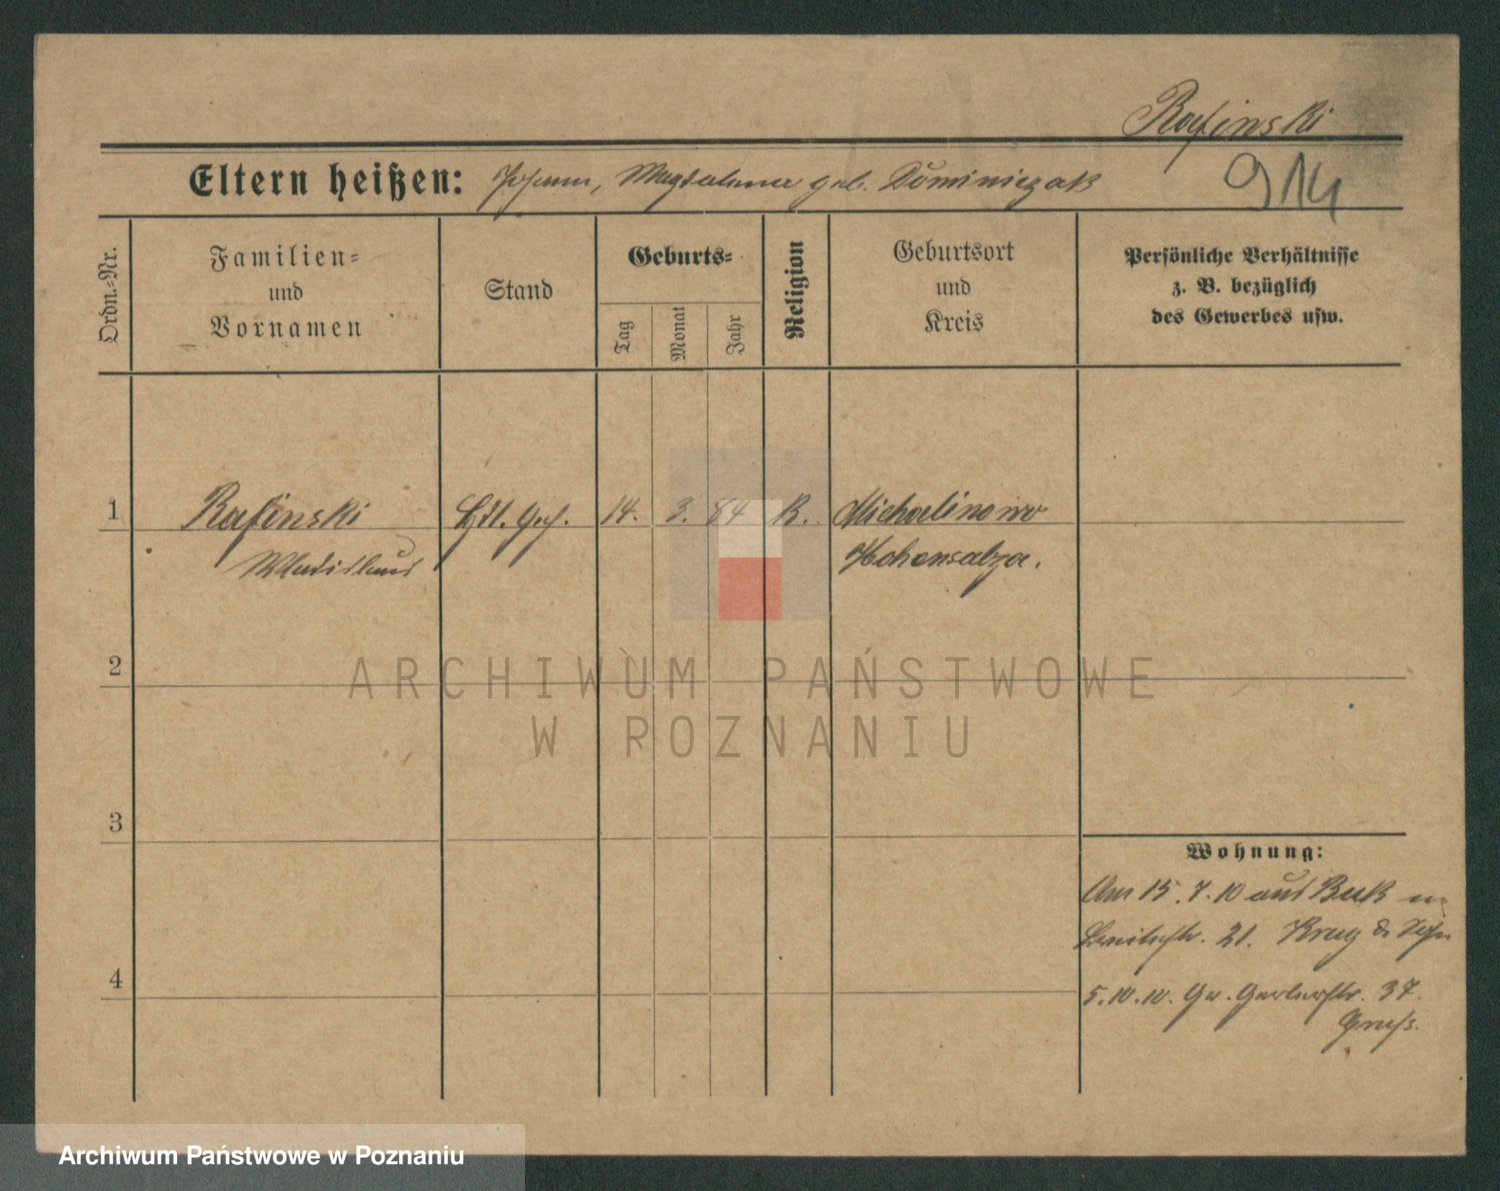 Rafinski
Eltern heißen: Johann, Magdalena geb. Dominiczak
914
Ordn.-Nr.
Familien-
und
Vornamen
Stand
Geburts-
Tag
Monat
Jahr
Religion
Geburtsort
und
Kreis
Persönliche Verhältnisse
z. B. bezüglich
des Gewerbes usw.
1
Rafinski
Wladislaus
14. 3. 84
K.
Michalinowo
Hohensalza.
2
ARCHIWUM PAŃSTWOWE
W POZNANIU
3
4
Wohnung:
Am 15. 7. 10 aus Buk
21. Krug &
5.10.10. Gr. Gerberstr. 37.
Archiwum Państwowe w Poznaniu